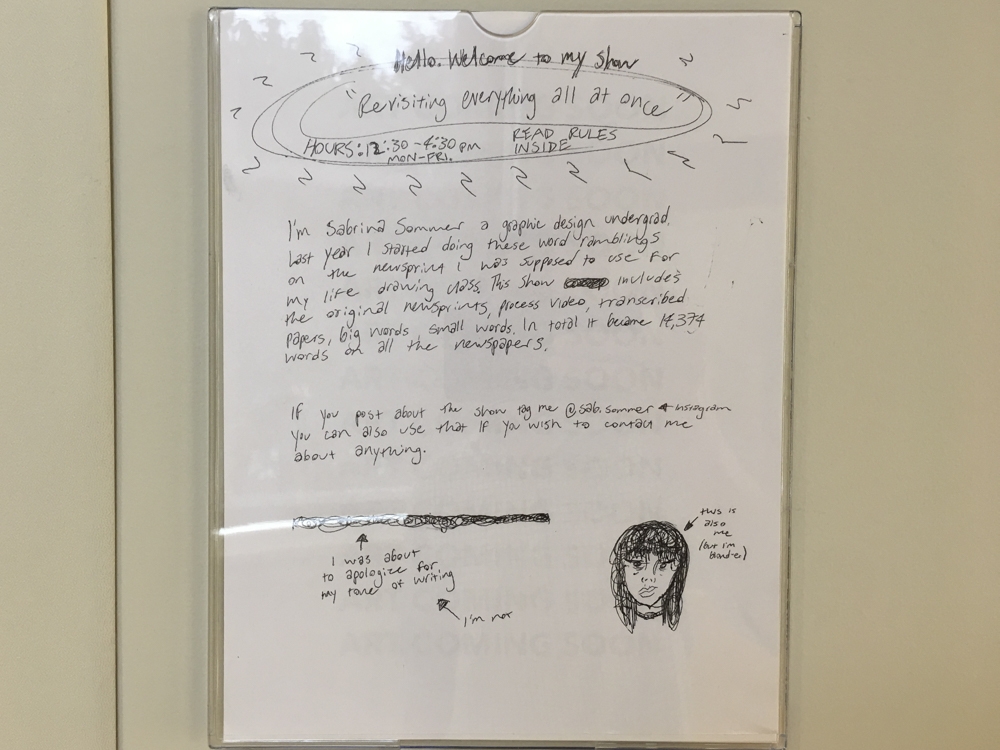 Hello. Welcome to my show
"Revisiting everything all at once"
HOURS: 12:30 - 4:30 PM
MON-FRI.
READ RULES
INSIDE
I'm Sabrina Sommer a graphic design undergrad.
Last year I started doing these word ramblings
on the newsprint I was supposed to use for
my life drawing class. This show includes
the original newsprints, process video, transcribed
papers, big words, small words. In total it became 14,374
words on all the newspapers.
If you post about the show tag me @sab.sommer instagram
you can also use that if you wish to contact me
about anything.
I was about
to apologize for
my tone of writing
I'm not
this is
also
me
(but I'm
blonde)
ART COMING SOON